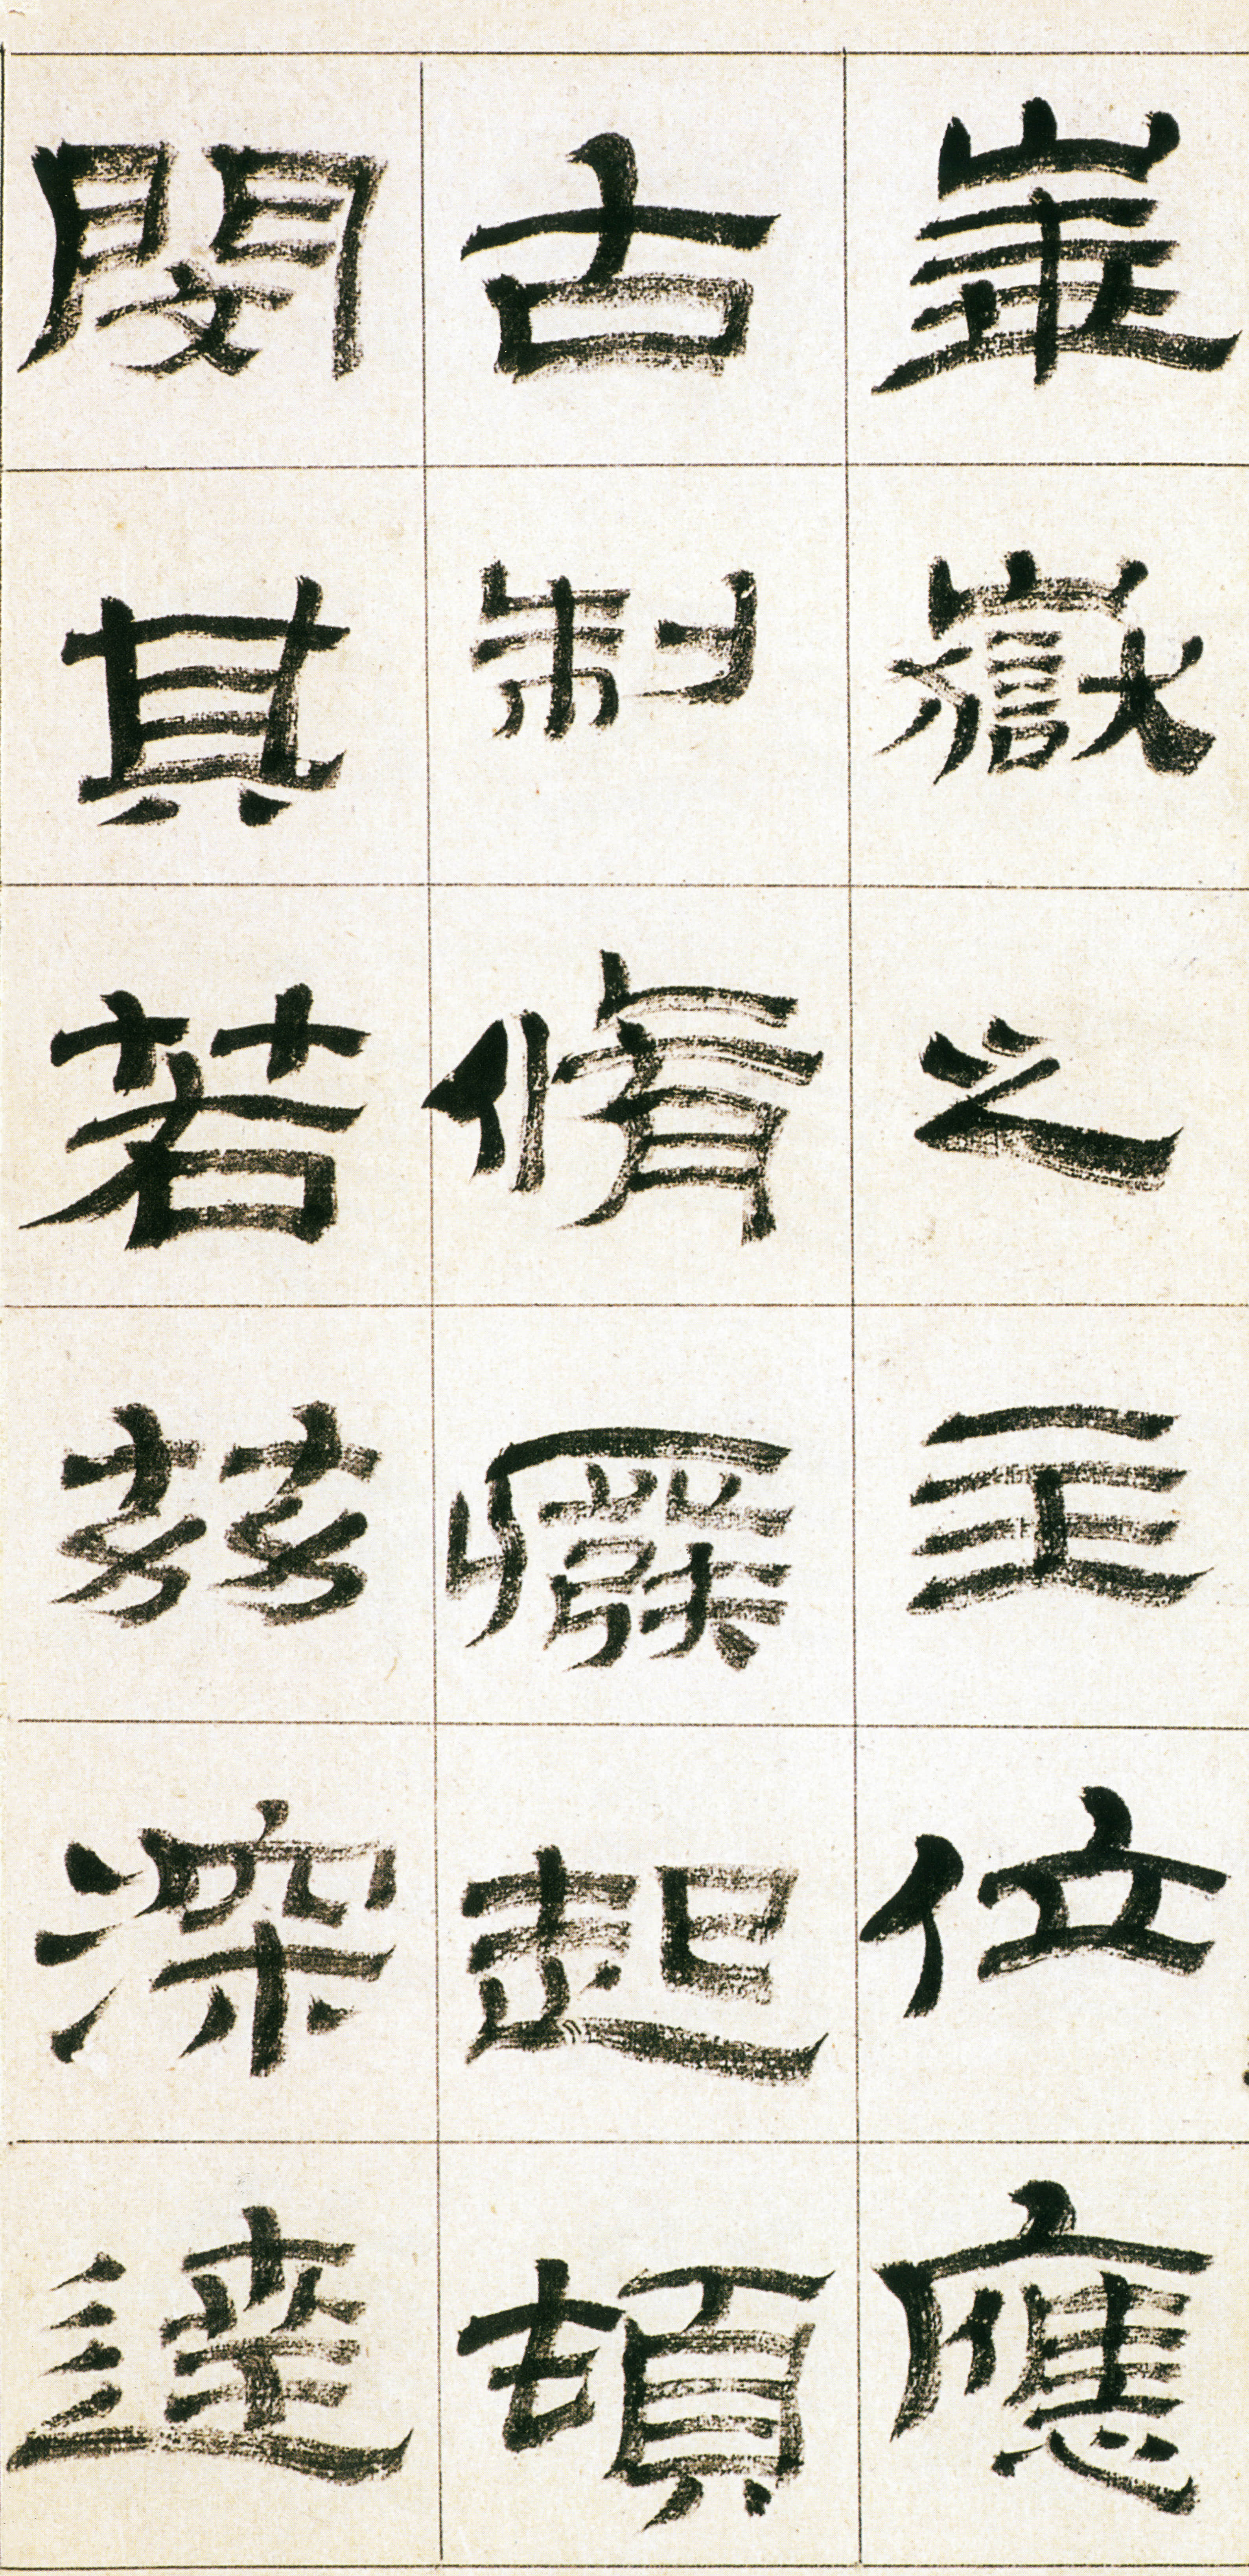 崋嶽之主位應
古制脩廢起頓
閔其若茲深達